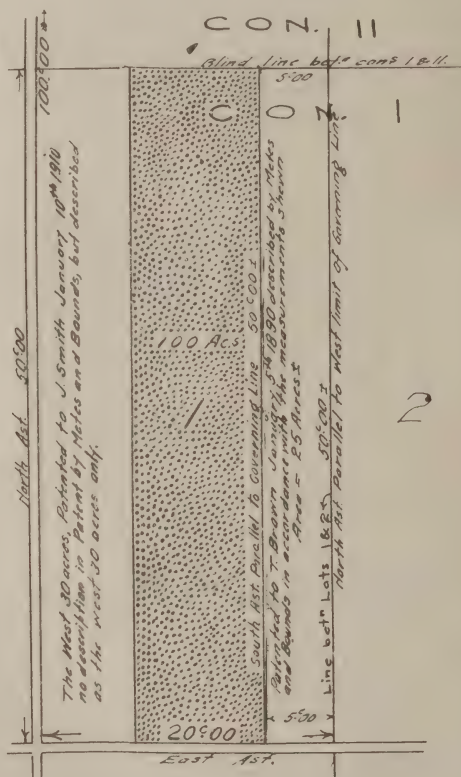 CON. II
Blind line betn cons I & II.
5c00
CON I
100c00 ±
North Ast. 50c00
The West 30 acres, Patented to J. Smith January 10th 1910
no description in Patent by Metes and Bounds, but described
as the west 30 acres only.
100 Acs
1
South Ast. Parallel to Governing Line 50c00 ±
Patented to T. Brown January 5th 1890 described by Metes
and Bounds in accordance with the measurements shewn
Area = 25 Acres ±
Line betn Lots 1 & 2 50c00 ±
North Ast Parallel to West limit of Governing Line
2
5c00
20c00
East Ast.